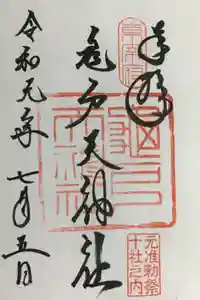 奉拝
亀戸天神社
令和元年七月五日
元准勅祭
十社之内